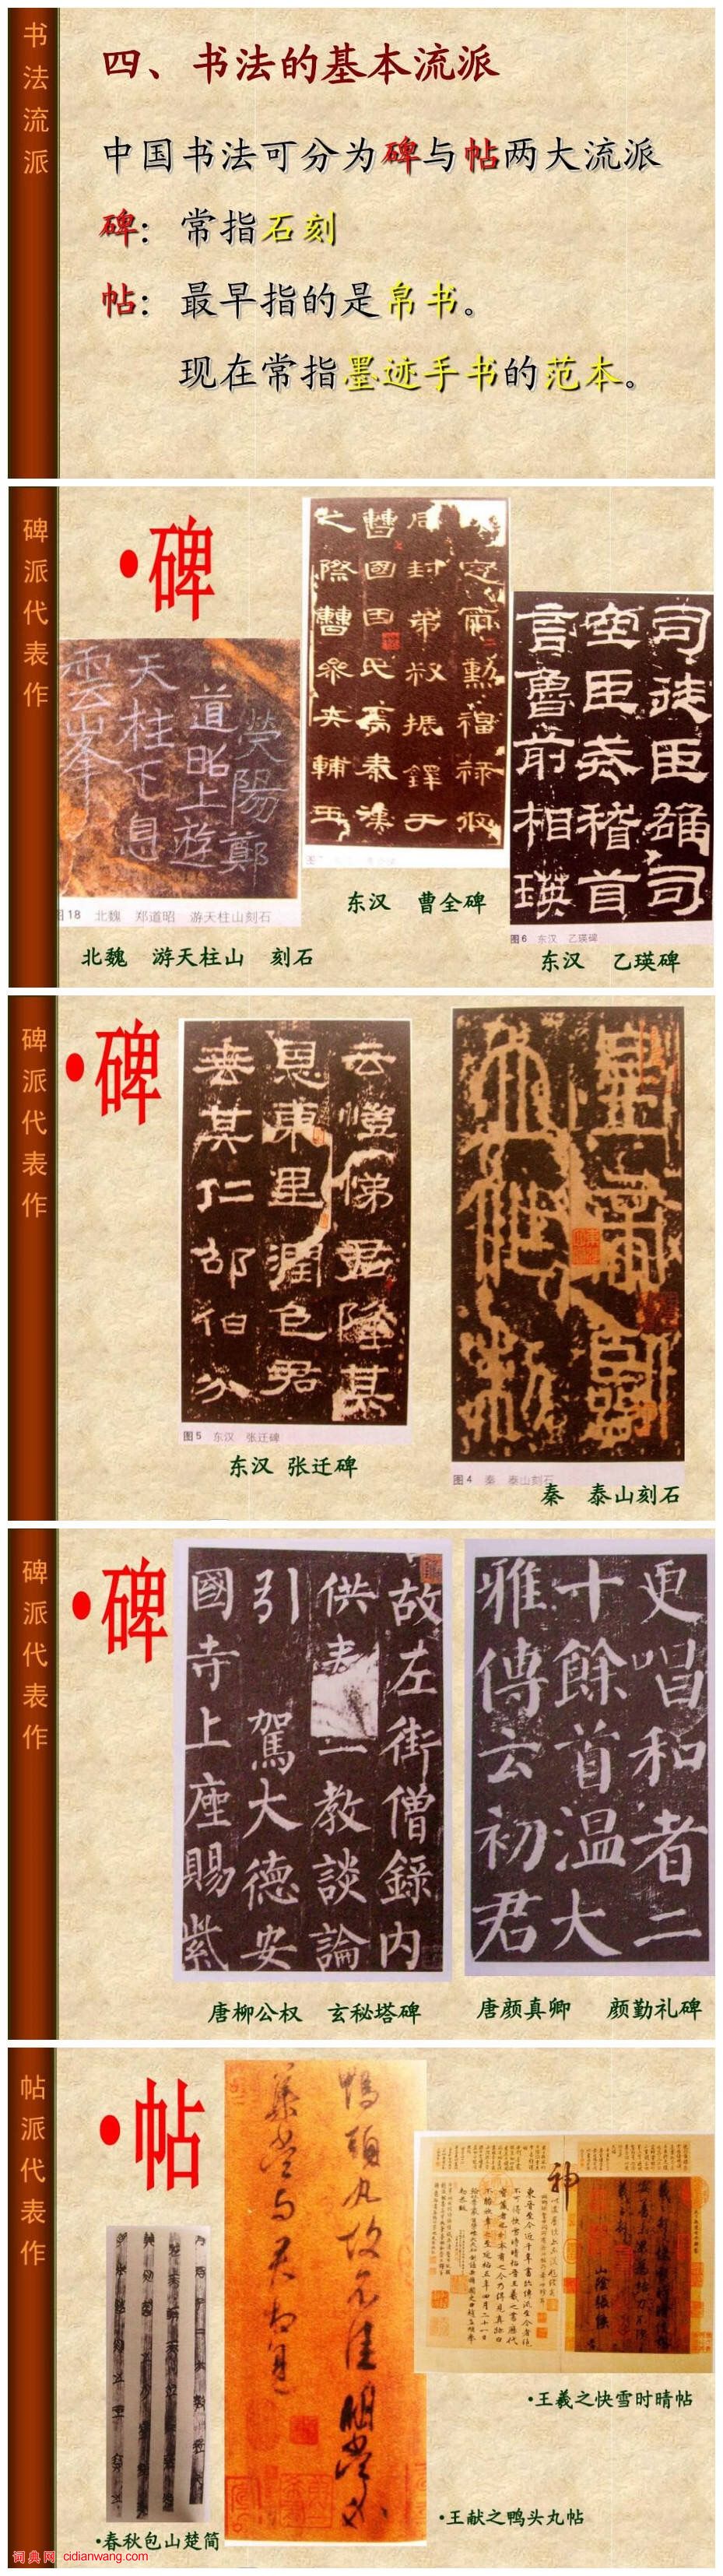 书法流派
四、书法的基本流派
中国书法可分为碑与帖两大流派
碑：常指石刻
帖：最早指的是帛书。
现在常指墨迹手书的范本。
碑派代表作
•碑
雲峯
天柱下息
道昭上遊
熒陽鄭
图18 北魏 郑道昭 游天柱山刻石
北魏 游天柱山 刻石
定爾勳福祿攸
同封弟叔振鐸于
曹國因氏焉秦漢
之際曹參夾輔王
东汉 曹全碑
司徒臣雄司
空臣戒稽首
言魯前相瑛
图6 东汉 乙瑛碑
东汉 乙瑛碑
碑派代表作
•碑
云愷悌君隆其
恩東里潤色君
垂其仁邵伯分
图5 东汉 张迁碑
东汉 张迁碑
图4 秦 泰山刻石
秦 泰山刻石
碑派代表作
•碑
故左街僧錄內
供表一教談論
引駕大德安
國寺上座賜紫
唐柳公权 玄秘塔碑
更唱和者二
十餘首温大
雅傳云初君
唐颜真卿 颜勤礼碑
帖派代表作
•帖
鴨頭丸故不佳明當必
集當與君相見
神
山陰張侯
•王羲之快雪时晴帖
•王献之鸭头丸帖
•春秋包山楚简
词典网 cidianwang.com